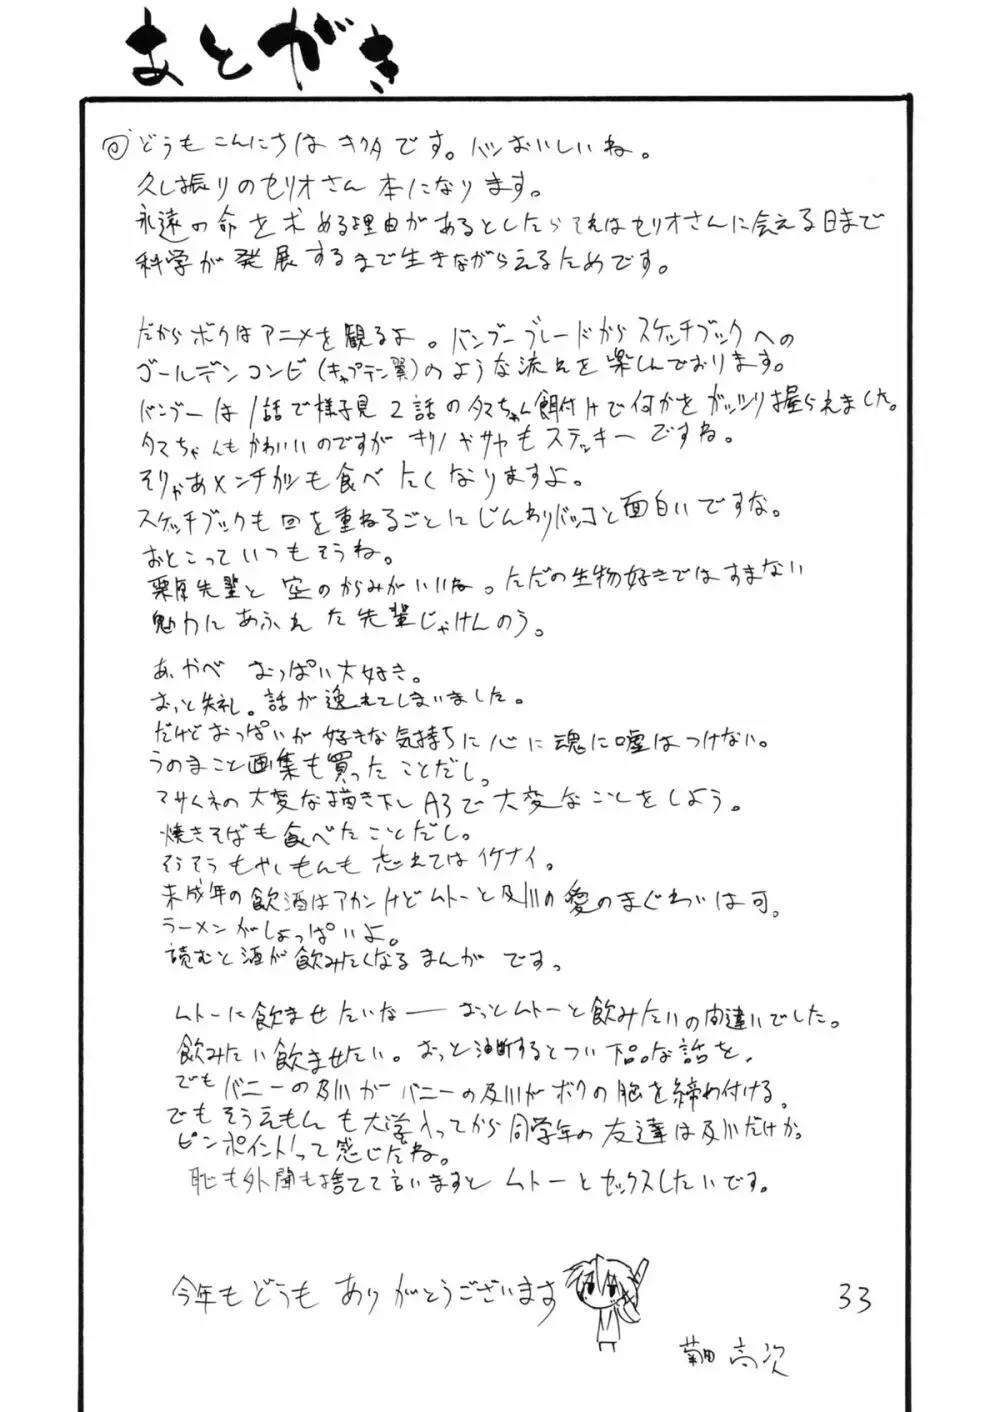 あとがき
どうもこんにちは キクタです。パンおいしいね。
久し振りのセリオさん本になります。
永遠の命を求める理由があるとしたらそれはセリオさんに会える日まで
科学が発展するまで生きながらえるためです。
だからボクはアニメを観るよ。バンブーブレードからスケッチブックへの
ゴールデンコンビ(キャプテン翼)のような流れを楽しんでおります。
バンブーは1話で様子見 2話のタマちゃん餌付けで何かをガッツリ握られました。
タマちゃんもかわいいのですが キリノやサヤもステッキーですね。
そりゃあメンチカツも食べたくなりますよ。
スケッチブックも回を重ねるごとにじんわりバッコと面白いですな。
おとこっていつもそうね。
栗原先輩と 空のからみがいいね。ただの生物好きではすまない
魅力にあふれた先輩じゃけんのう。
あ、やべ おっぱい大好き。
おっと失礼。話が逸れてしまいました。
だけどおっぱいが好きな気持ちに心に魂に嘘はつけない。
うのまこと画集も買ったことだし。
マサムネの大変な描き下しA3で大変なことをしよう。
焼きそばも食べたことだし。
そうそうもやしもんも忘れてはイケナイ。
未成年の飲酒はアカンけどムトーと及川の愛のまぐわいは可。
ラーメンがしょっぱいよ。
読むと酒が飲みたくなるまんがです。
ムトーに飲ませたいなー おっとムトーと飲みたいの間違いでした。
飲みたい飲ませたい。おっと油断するとつい下品な話を。
でもバニーの及川が バニーの及川がボクの胸を締め付ける。
でもそうえもんも大学入ってから同学年の友達は及川だけか。
ピンポイントって感じだね。
恥も外聞も捨てて言いますと ムトーとセックスしたいです。
今年もどうもありがとうございます
33
菊田 高次